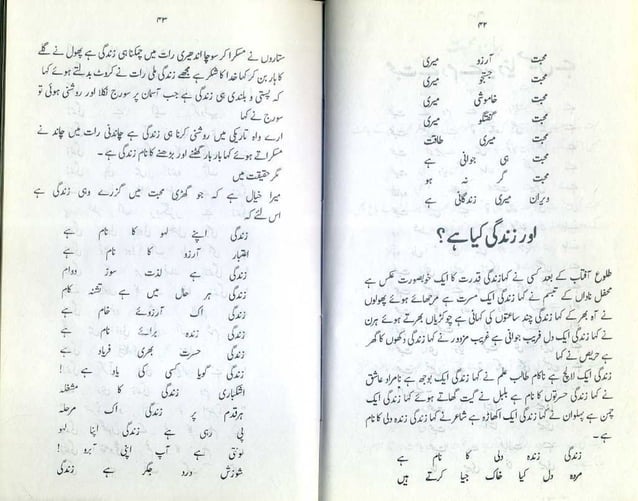 ۴۲
محبت آرزو میری
محبت جستجو میری
محبت خاموشی میری
محبت گفتگو میری
محبت میری طاقت
محبت ہی جوانی ہے
محبت گر نہ ہو
ویران میری زندگانی ہے
اور زندگی کیا ہے؟
طلوع آفتاب کے بعد کسی نے کہا زندگی قدرت کا ایک خوبصورت عکس ہے
محفل ناداں کے تبسم نے کہا زندگی ایک مسرت ہے مرجھائے ہوئے پھولوں
نے آہ بھر کے کہا زندگی چند ساعتوں کی کہانی ہے چوکڑیاں بھرتے ہوئے ہرن
نے کہا زندگی ایک دل فریب جوانی ہے غریب مزدور نے کہا زندگی دکھوں کا گھر
ہے حریص نے کہا
زندگی ایک لالچ ہے ناکام طالب علم نے کہا زندگی ایک بوجھ ہے نامراد عاشق
نے کہا زندگی حسرتوں کا نام ہے بلبل نے گیت گھاتے ہوئے کہا زندگی ایک
چمن ہے پہلوان نے کہا زندگی ایک اکھاڑہ ہے شاعر نے کہا زندگی زندہ دلی کا نام
ہے۔
زندگی زندہ دلی کا نام ہے
مردہ دل کیا خاک جیا کرتے ہیں
۴۳
ستاروں نے مسکرا کر سوچا اندھیری رات میں چمکنا ہی زندگی ہے پھول نے گلے
کا ہار بن کر کہا خدا کا شکر ہے مجھے زندگی ملی رات نے کروٹ بدلتے ہوئے کہا
کہ پستی و بلندی ہی زندگی ہے جب آسمان پر سورج نکلا اور روشنی ہوئی تو
سورج نے کہا
ارے واہ تاریکی میں روشنی کرنا ہی زندگی ہے چاندنی رات میں چاند نے
مسکراتے ہوئے کہا بار بار گھٹنے اور بڑھنے کا نام زندگی ہے۔
مگر حقیقت میں
میرا خیال ہے کہ جو گھڑی محبت میں گزرے وہی زندگی ہے
اس لئے کہ
زندگی اپنے لہو کا نام ہے
اعتبار آرزو کا نام ہے
زندگی ہے لذت سوز دوام
زندگی ہر حال میں ہے تشنہ کام
زندگی اک آرزوئے خام ہے
زندگی زندہ برائے نام ہے
زندگی حسرت بھری فریاد ہے
زندگی گویا کسی کی یاد ہے!
اشکباری زندگی کا مشغلہ
ہر قدم پر زندگی اک مرحلہ
پی رہی ہے زندگی اپنا لہو
لوٹتی ہے آپ اپنی آبرو!
شورش درد جگر ہے زندگی